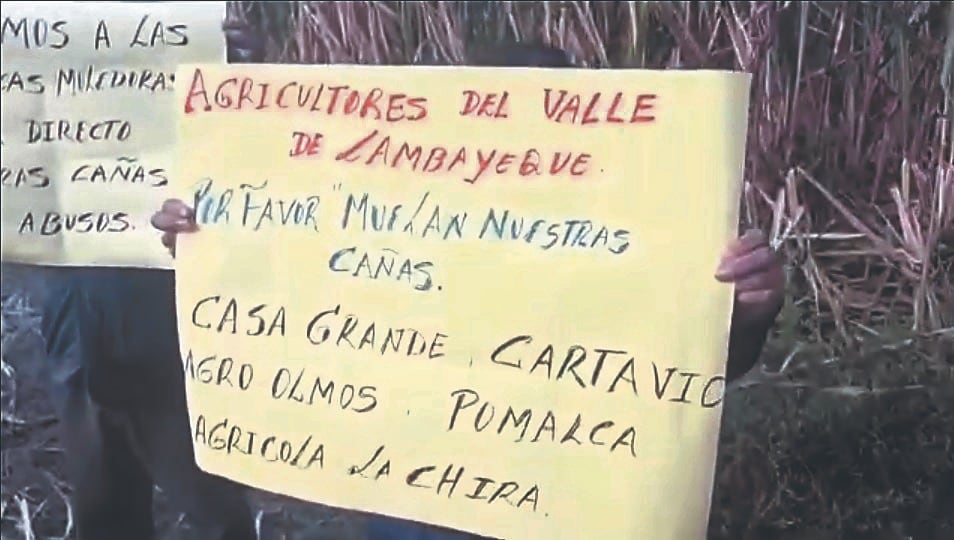 MOS A LAS
AS MOLEDORAS
DIRECTO
RAS CAÑAS
ABUSOS.
AGRICULTORES DEL VALLE
DE LAMBAYEQUE.
POR FAVOR "MUELAN NUESTRAS
CAÑAS.
CASA GRANDE, CARTAVIO
AGRO OLMOS, POMALCA
AGRICOLA LA CHIRA.